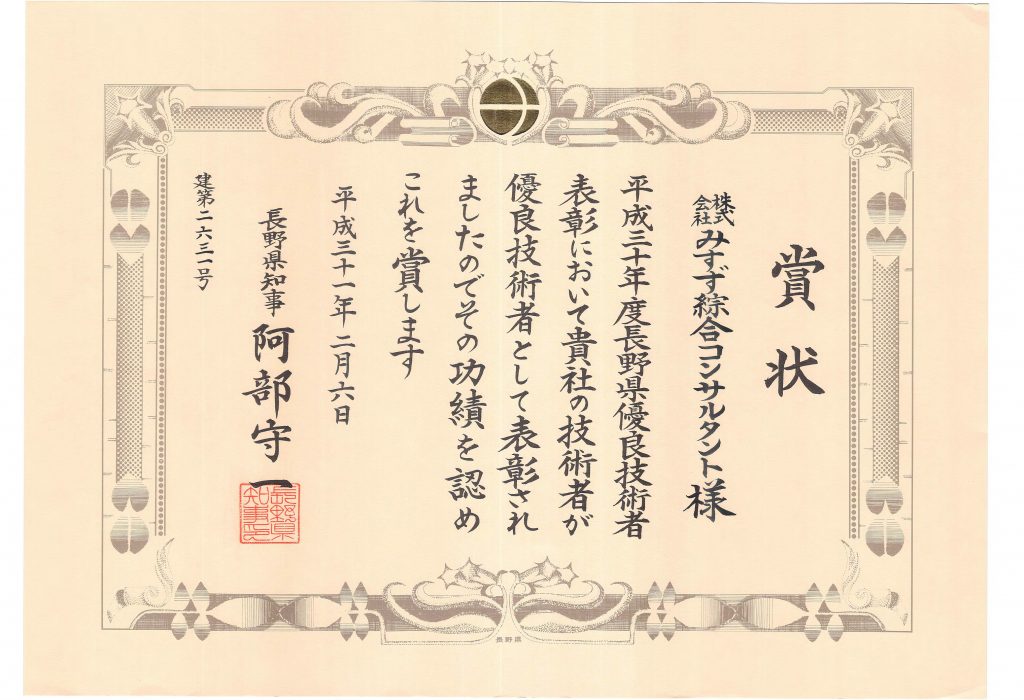 賞状
株式会社みすず綜合コンサルタント様
平成三十年度長野県優良技術者
表彰において貴社の技術者が
優良技術者として表彰され
ましたのでその功績を認め
これを賞します
平成三十一年二月六日
長野県知事 阿部守一
長野県知事印
建第二六三一号
長野県